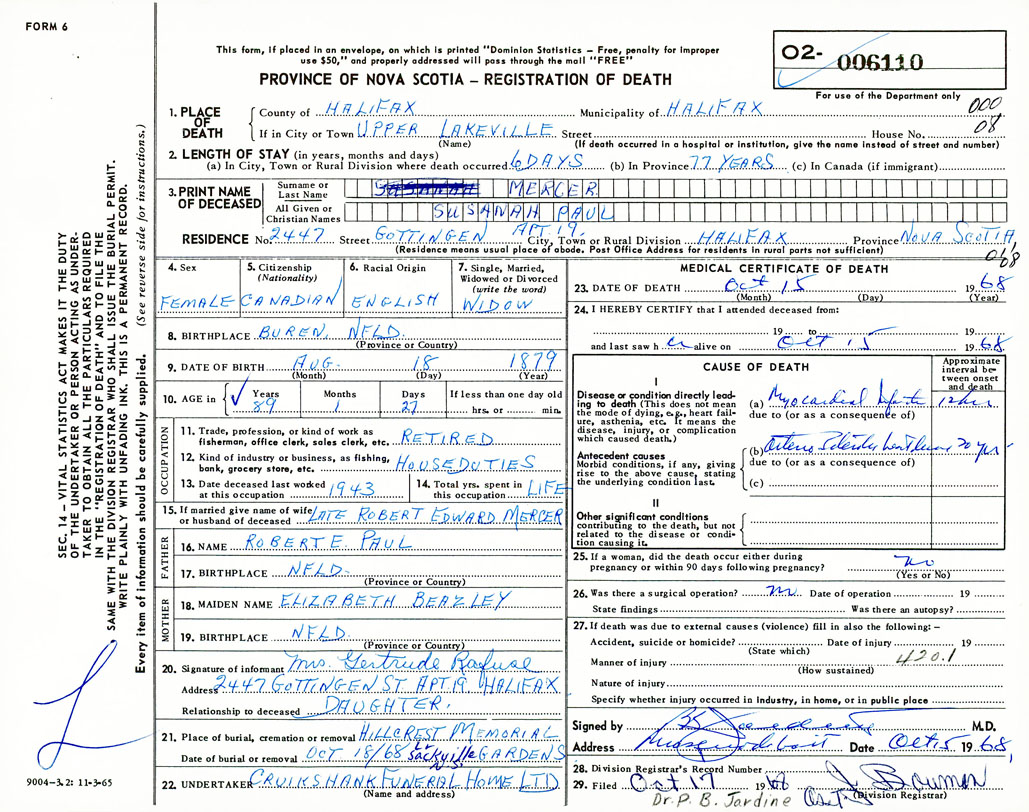 FORM 6
This form, if placed in an envelope, on which is printed "Dominion Statistics – Free, penalty for improper
use $50," and properly addressed will pass through the mail "FREE"
PROVINCE OF NOVA SCOTIA – REGISTRATION OF DEATH
O2- 006110
For use of the Department only
000
08
1. PLACE OF DEATH
County of HALIFAX Municipality of HALIFAX
If in City or Town UPPER LAKEVILLE Street House No.
(Name) (If death occurred in a hospital or institution, give the name instead of street and number)
2. LENGTH OF STAY (in years, months and days)
(a) In City, Town or Rural Division where death occurred 6 DAYS (b) In Province 77 YEARS (c) In Canada (if immigrant)
3. PRINT NAME OF DECEASED
Surname or Last Name MERCER
All Given or Christian Names SUSANAH PAUL
RESIDENCE No. 2447 Street GOTTINGEN APT. 19. City, Town or Rural Division HALIFAX Province NOVA SCOTIA
(Residence means usual place of abode. Post Office Address for residents in rural parts not sufficient)
068
4. Sex FEMALE
5. Citizenship (Nationality) CANADIAN
6. Racial Origin ENGLISH
7. Single, Married, Widowed or Divorced (write the word) WIDOW
8. BIRTHPLACE BUREN, NFLD.
(Province or Country)
9. DATE OF BIRTH AUG. 18 1879
(Month) (Day) (Year)
10. AGE in Years 89 Months 1 Days 27 If less than one day old hrs. or min.
OCCUPATION
11. Trade, profession or kind of work as fisherman, office clerk, sales clerk, etc. RETIRED
12. Kind of industry or business, as fishing, bank, grocery store, etc. HOUSEDUTIES
13. Date deceased last worked at this occupation 1943
14. Total yrs. spent in this occupation LIFE
15. If married give name of wife or husband of deceased LATE ROBERT EDWARD MERCER
FATHER
16. NAME ROBERT E. PAUL
17. BIRTHPLACE NFLD.
(Province or Country)
MOTHER
18. MAIDEN NAME ELIZABETH BEAZLEY
19. BIRTHPLACE NFLD.
(Province or Country)
20. Signature of informant Mrs. Gertrude Rafuse
Address 2447 GOTTINGEN ST APT. 19 HALIFAX
Relationship to deceased DAUGHTER.
21. Place of burial, cremation or removal HILLCREST MEMORIAL
Date of burial or removal OCT 18/68 Lr Sackville N.S. GARDENS
22. UNDERTAKER CRUIKSHANK FUNERAL HOME LTD
(Name and address)
MEDICAL CERTIFICATE OF DEATH
23. DATE OF DEATH Oct 15 1968
(Month) (Day) (Year)
24. I HEREBY CERTIFY that I attended deceased from:
19 to 19
and last saw h er alive on Oct 15 1968
CAUSE OF DEATH
Approximate interval between onset and death
I
Disease or condition directly leading to death (This does not mean the mode of dying, e.g., heart failure, asthenia, etc. It means the disease, injury, or complication which caused death.)
(a) Myocardial 12 hr
due to (or as a consequence of)
Antecedent causes
Morbid conditions, if any, giving rise to the above cause, stating the underlying condition last.
(b) 20 yrs
due to (or as a consequence of)
(c)
II
Other significant conditions contributing to the death, but not related to the disease or condition causing it.
25. If a woman, did the death occur either during pregnancy or within 90 days following pregnancy? no
(Yes or No)
26. Was there a surgical operation? no Date of operation 19
State findings Was there an autopsy?
27. If death was due to external causes (violence) fill in also the following:–
Accident, suicide or homicide? Date of injury 19
(State which)
Manner of injury 420.1
(How sustained)
Nature of injury
Specify whether injury occurred in Industry, in home, or in public place
Signed by M.D.
Address Musquodoboit Date Oct 15 1968
28. Division Registrar's Record Number
29. Filed Oct 17 1968 J. Bowman
(Division Registrar)
Dr. P. B. Jardine
SEC. 14 – VITAL STATISTICS ACT MAKES IT THE DUTY
OF THE UNDERTAKER OR PERSON ACTING AS UNDER-
TAKER TO OBTAIN ALL THE PARTICULARS REQUIRED
IN THE "REGISTRATION OF DEATH" AND TO FILE THE
SAME WITH THE DIVISION REGISTRAR WHO SHALL ISSUE THE BURIAL PERMIT.
WRITE PLAINLY WITH UNFADING INK. THIS IS A PERMANENT RECORD.
Every item of information should be carefully supplied. (See reverse side for instructions.)
9004-3.2: 11-3-65